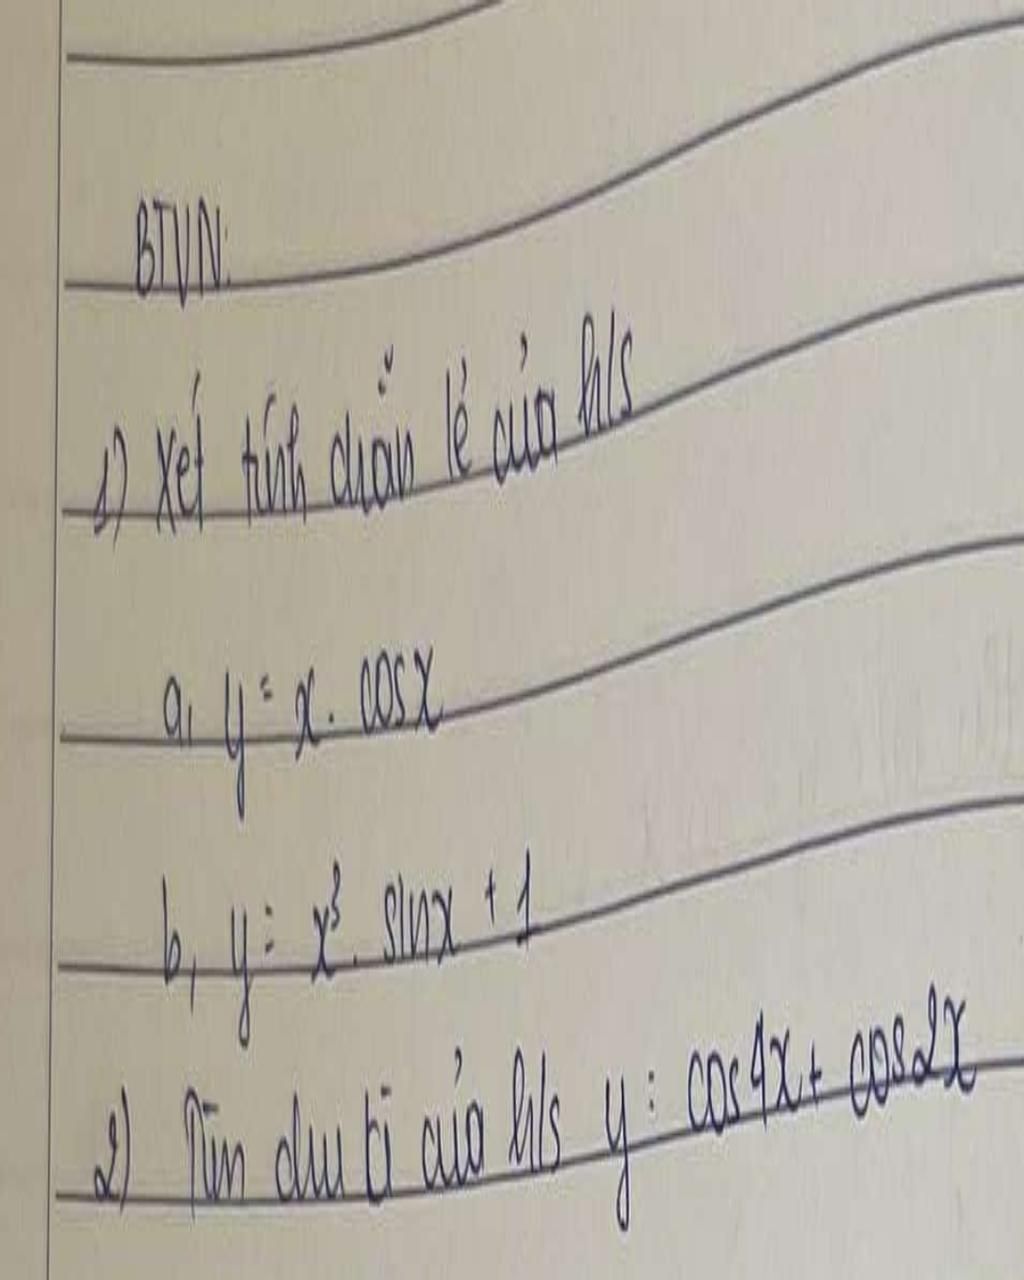 BTVN:
1) Xét tính chẵn lẻ của h/s
a, y = x . cosx
b, y = x³ . sinx + 1
2) Tìm chu kì của h/s y = cos4x + cos2x